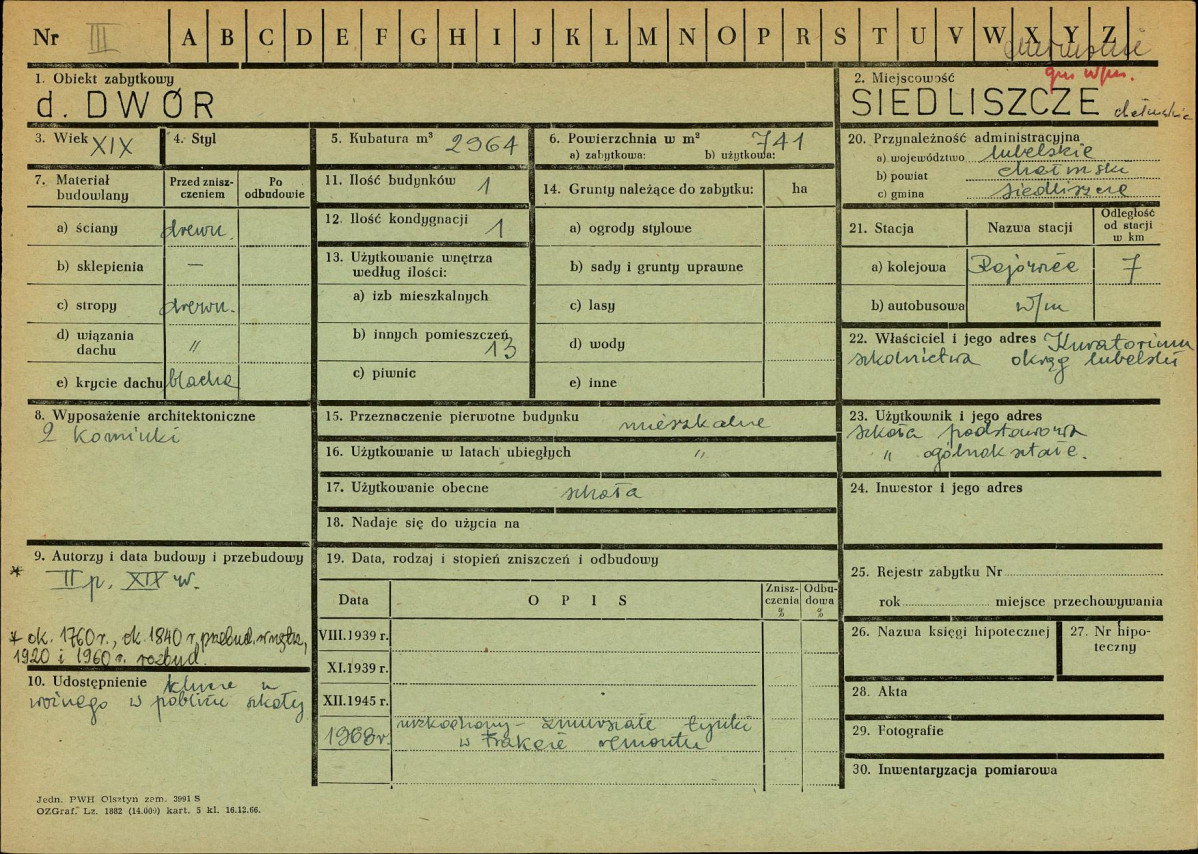 Nr III A B C D E F G H I J K L M N O P R S T U V W X Y Z
gm w/m.
1. Obiekt zabytkowy
d. DWÓR
2. Miejscowość
SIEDLISZCZE
3. Wiek XIX
4. Styl
5. Kubatura m³ 2964
6. Powierzchnia w m² 741
a) zabytkowa: b) użytkowa:
20. Przynależność administracyjna
a) województwo lubelskie
b) powiat chełmski
c) gmina Siedliszcze
7. Materiał budowlany
Przed zniszczeniem
Po odbudowie
a) ściany drewn.
b) sklepienia —
c) stropy drewn.
d) wiązania dachu "
e) krycie dachu blacha
11. Ilość budynków 1
12. Ilość kondygnacji 1
13. Użytkowanie wnętrza
według ilości:
a) izb mieszkalnych
b) innych pomieszczeń 13
c) piwnic
14. Grunty należące do zabytku: ha
a) ogrody stylowe
b) sady i grunty uprawne
c) lasy
d) wody
e) inne
21. Stacja
Nazwa stacji
Odległość
od stacji
w km
a) kolejowa Rejowiec 7
b) autobusowa w/m
22. Właściciel i jego adres Kuratorium
szkolnictwa okręg lubelski
8. Wyposażenie architektoniczne
2 kominki
15. Przeznaczenie pierwotne budynku mieszkalne
16. Użytkowanie w latach ubiegłych "
17. Użytkowanie obecne szkoła
18. Nadaje się do użycia na
23. Użytkownik i jego adres
szkoła podstawowa
" ogólnokształc.
24. Inwestor i jego adres
9. Autorzy i data budowy i przebudowy
* II p. XIX w.
* ok. 1760 r., ok. 1840 r. przebud. wnętrz,
1920 i 1960 r. rozbud.
10. Udostępnienie klucze u
woźnego w pobliżu szkoły
19. Data, rodzaj i stopień zniszczeń i odbudowy
Data
O P I S
Znisz-
czenia
%
Odbu-
dowa
%
VIII.1939 r.
XI.1939 r.
XII.1945 r.
1968 r. uszkodzony - zmurszałe tynki
w trakcie remontu
25. Rejestr zabytku Nr
rok miejsce przechowywania
26. Nazwa księgi hipotecznej
27. Nr hipo-
teczny
28. Akta
29. Fotografie
30. Inwentaryzacja pomiarowa
Jedn. PWH Olsztyn zam. 3991 S
OZGraf. Lz. 1882 (14.000) kart. 5 kl. 16.12.66.